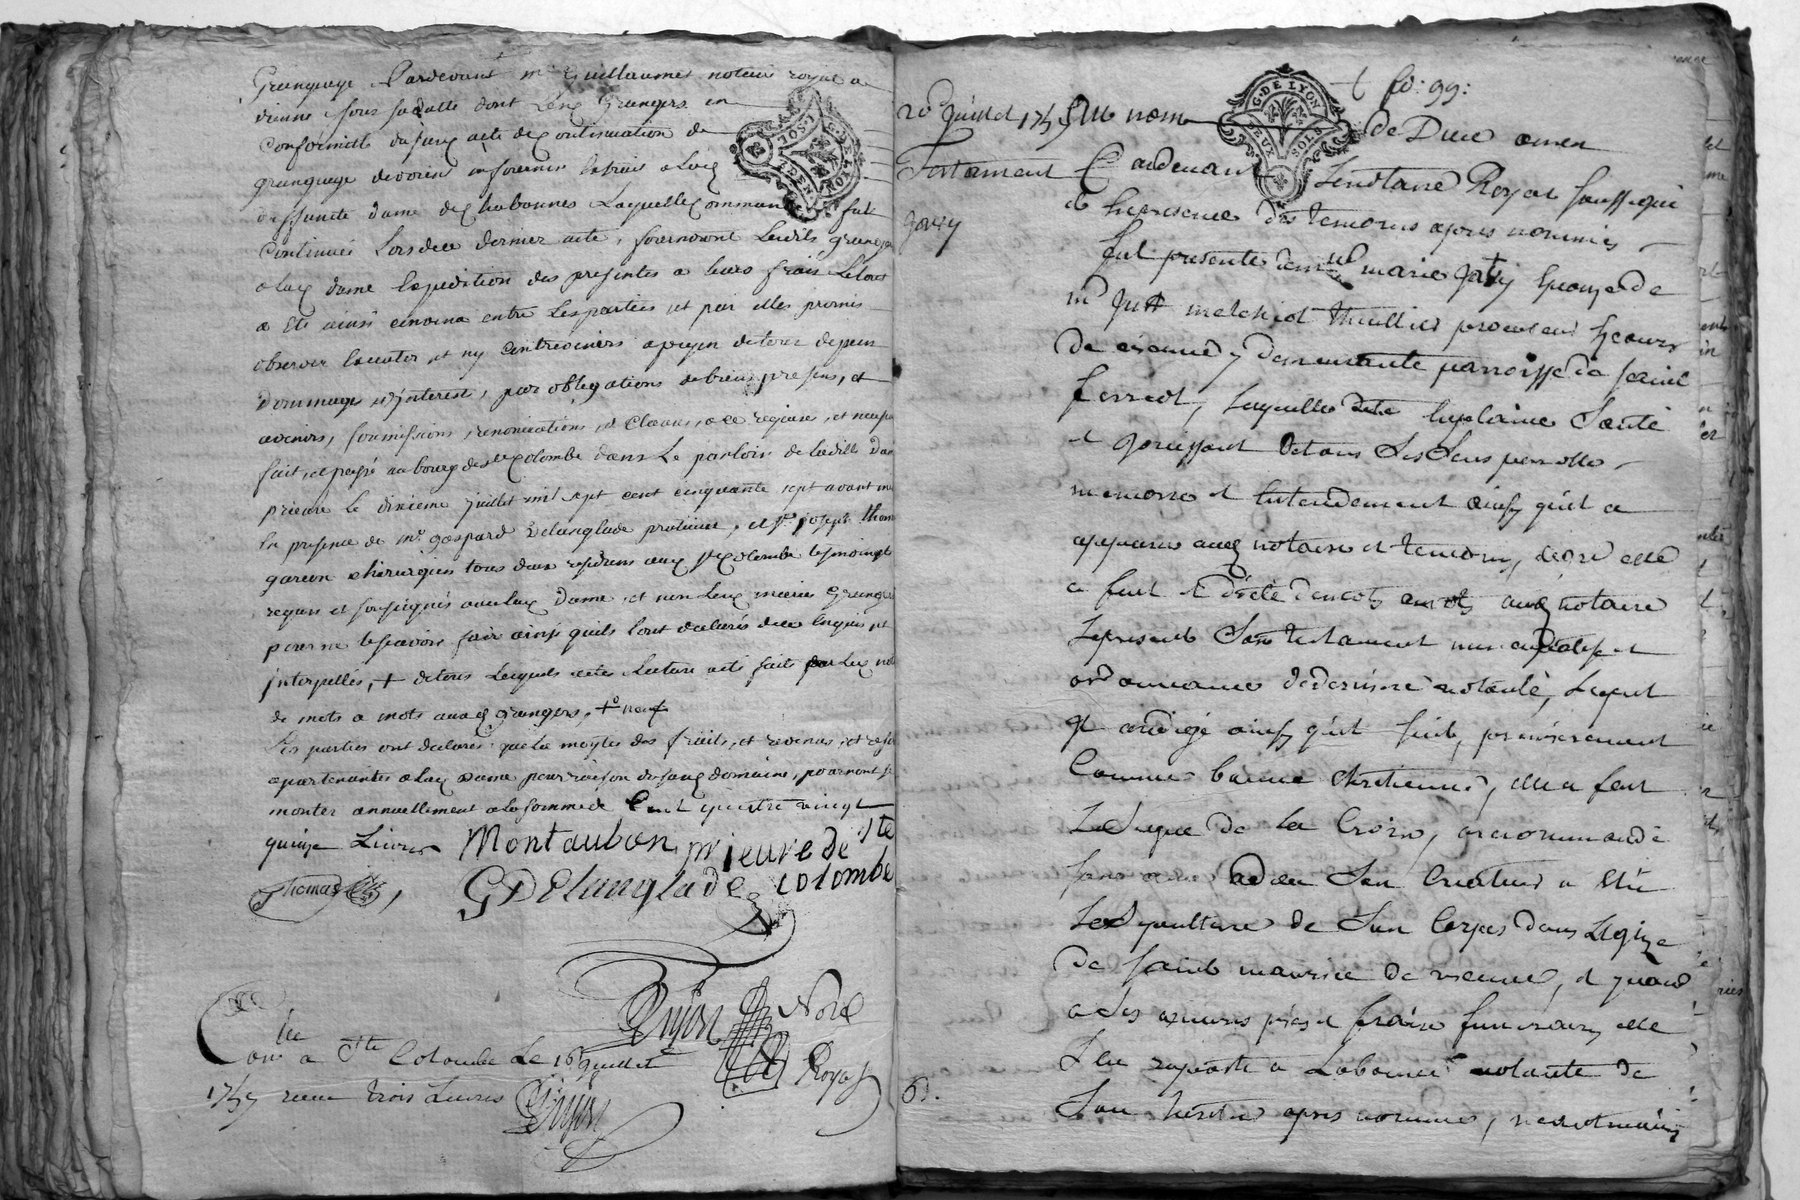 Grangeage Pardevant Me Guillaumet notaire royal a
vienne sous sa datte dont leux Grangers en
conformitté du sux acte de Continuation de
grangeage devoient en fournir Extrait a lax
deffuncte dame de Chabannes Laquelle command fut
Continués Lors de ce dernier acte, fourniront Lesdits granger
a lax dame Expedition des presentes a leurs frais Le tout
a été ainsi convenu entre Les parties et par elles promis
observer Executer et ny Contrevenir a peyne de tous depens
Dommages et jnterest, par obligations de biens presens, et
avenirs, soumissions, renonciations, et Clauses, a ce requises, et
fait et passé au bourg de ste Colombe dans Le parloir de laditte Dame
prieure le dixieme juillet mil sept cent cinquante sept avant midi
En presence de me gaspard Delanglade praticien, et sr joseph thomas
garcon chirurgien tous deux residens aux ste Colombe tesmoings
requis et soussignés avec lax Dame et non leux Granger
pour ne le scavoir fair ainsi quils l'ont declarés de ce Enquis et
jnterpellés, + de tous Lesquels actes Lecture a eté fait par Lex not
de mots a mots auxd grangers, +
Les parties ont declarés que La moytié des fruits, et revenus, et
apartenants a lax Dame pour raison du sux domaine, pourront se
monter annuellement a la somme de Cent quatre vingt
quinze Livres Montauban prieure de ste
colombe
Thomas GDelanglade
Guyon Not
Royal
Conlle a Ste Colombe Le 16 juillet
1757 receu trois Livres
Guyon
fo: 99:
G. DE LYON
DEUX SOLS
G. DE LYON
20e juillet 1757 Au nom de Dieu amen
Testament Pardevant Le notaire Royal soussigné
Jarry
et En presence des temoins apres nommés
fut presente demlle marie Jarry Epouze de
Me Just melchiot thuillier procureur Es cours
de vienne y demeurante parroisse de saint
ferreol, laquelle de
et jouissant de tous Ses Sens parolle
memoire et Entendement ainsy quil a
apparu auxd notaire et temoins, de gré elle
a fait et dicté de mots a mots auxd notaire
Le present Son testament nuncupatif et
ordonnance de derniere volonté, Lequel
a redigé ainsy quil suit, premierement
Comme bonne chretienne, elle a fait
Le signe de la Croix, a recommandé
son ame a dieu Son Createur a Elu
La Sepulture de Son Corps dans LEglize
de saint maurice de vienne, et quand
a Ses œuvres pies et fraix funeraires elle
S'en raporte a La bonne volonté de
Son heritier apres nommé,